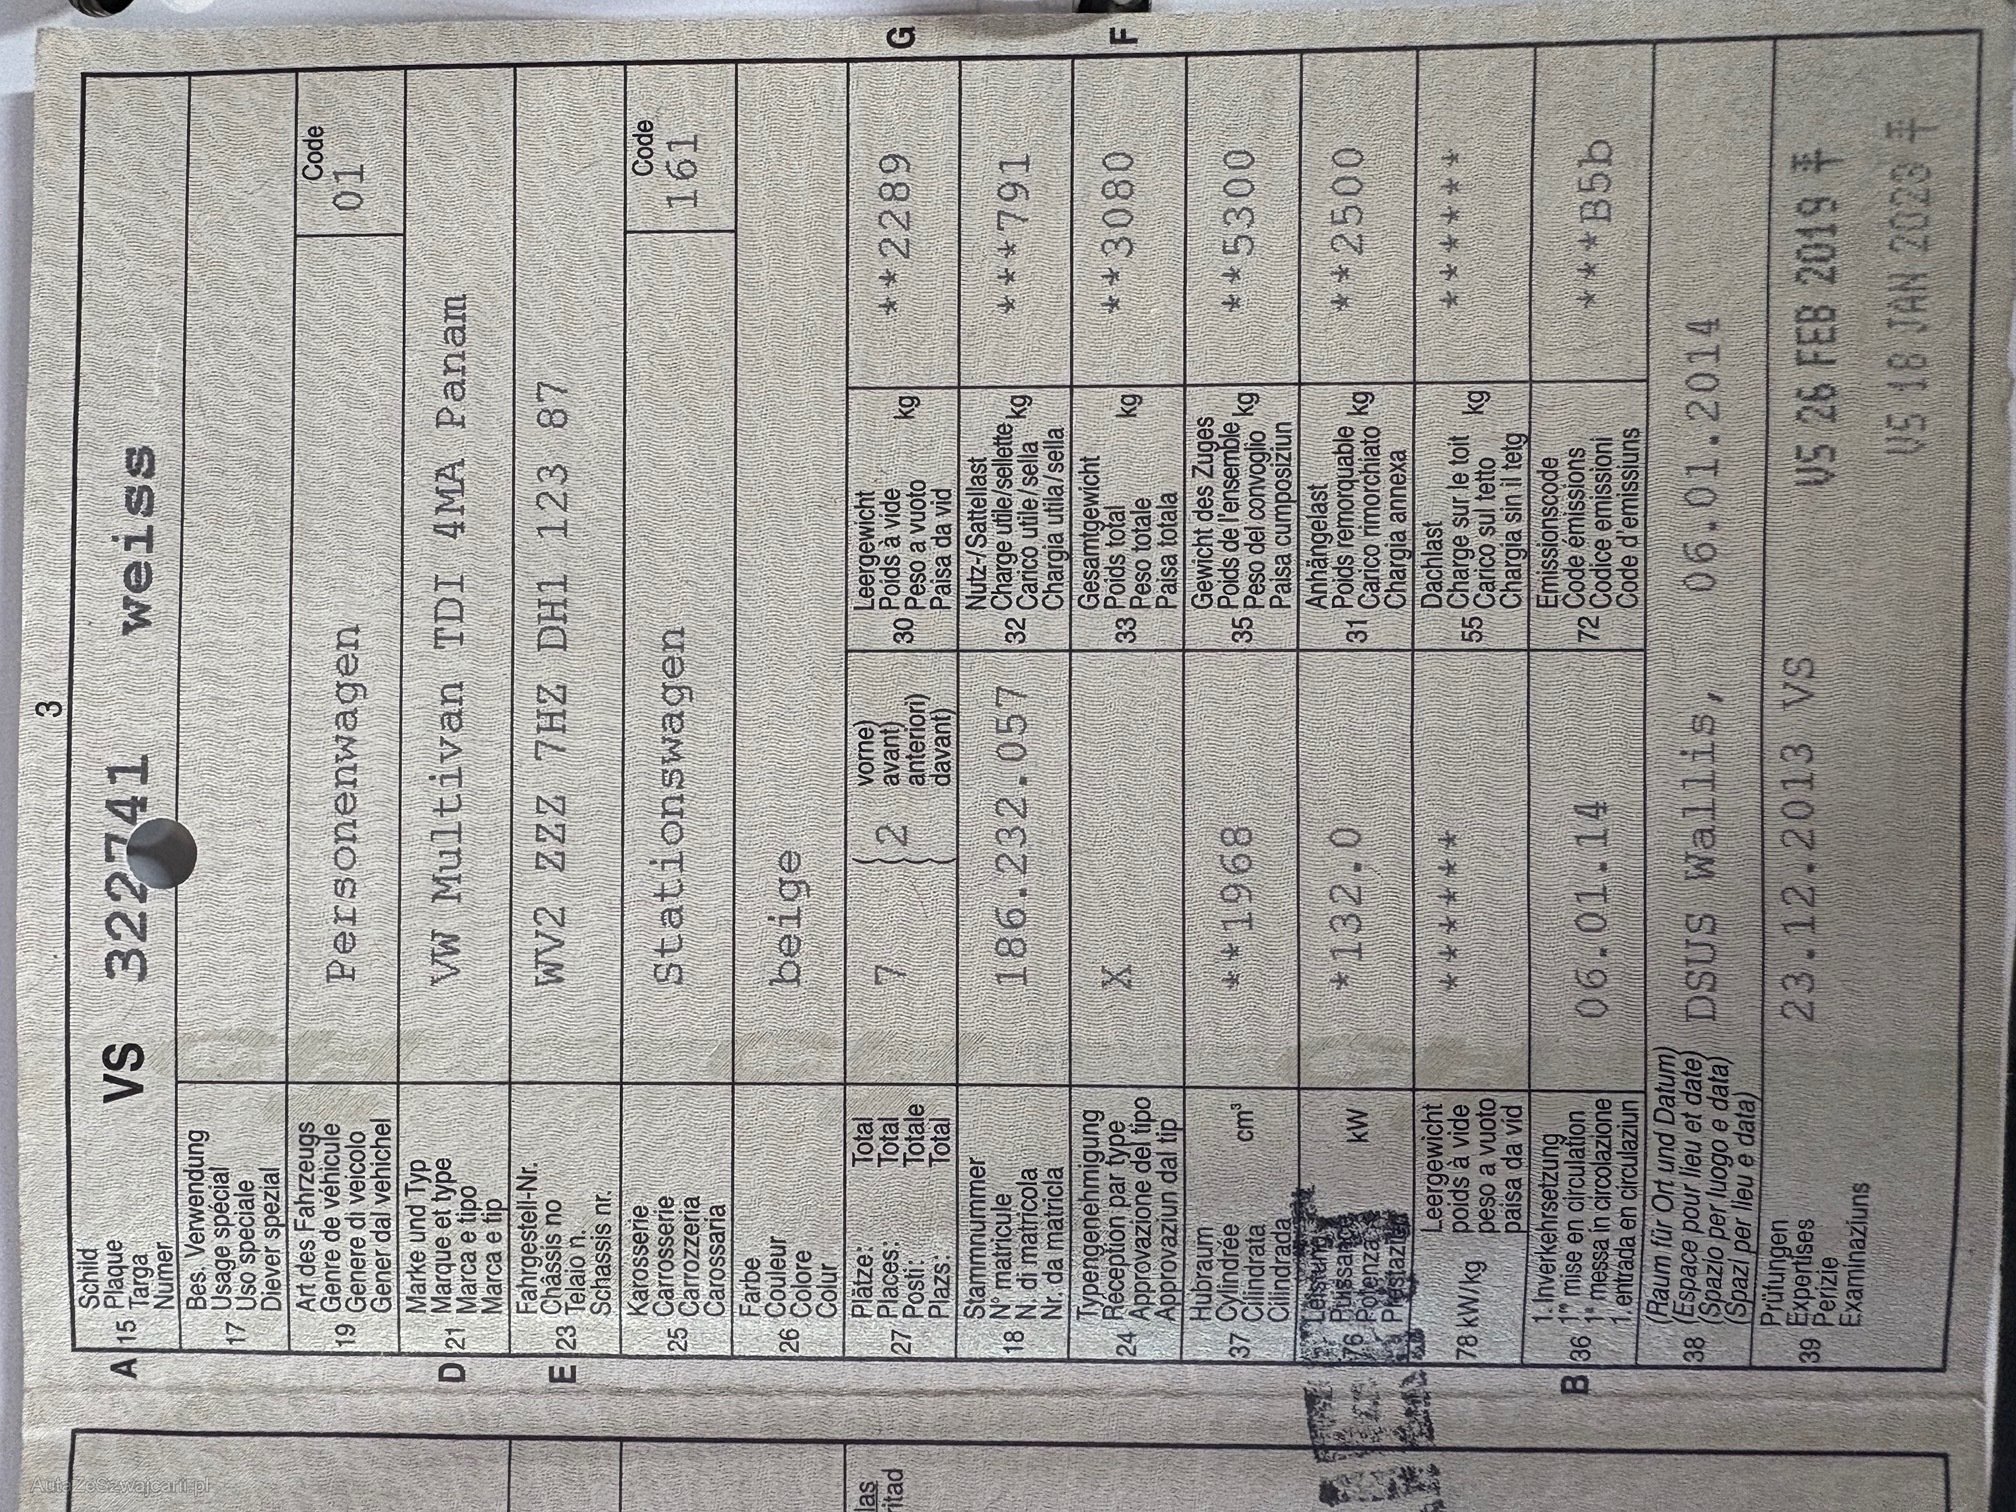 3
A
15
Schild
Plaque
Targa
Numer
VS 322741 weiss
17
Bes. Verwendung
Usage spécial
Uso speciale
Diever spezial
19
Art des Fahrzeugs
Genre de véhicule
Genere di veicolo
Gener dal vehichel
Personenwagen
Code
01
D
21
Marke und Typ
Marque et type
Marca e tipo
Marca e tip
VW Multivan TDI 4MA Panam
E
23
Fahrgestell-Nr.
Châssis no
Telaio n.
Schassis nr.
WV2 ZZZ 7HZ DH1 123 87
25
Karosserie
Carrosserie
Carrozzeria
Carossaria
Stationswagen
Code
161
26
Farbe
Couleur
Colore
Colur
beige
27
Plätze: Total
Places: Total
Posti: Totale
Plazs: Total
7
2
vorne)
avant)
anteriori)
davant)
30
Leergewicht
Poids à vide
Peso a vuoto kg
Paisa da vid
**2289
G
18
Stammnummer
N° matricule
N. di matricola
Nr. da matricla
186.232.057
32
Nutz-/Sattellast
Charge utile/sellette kg
Carico utile/sella
Chargia utila/sella
***791
24
Typengenehmigung
Réception par type
Approvazione del tipo
Approvaziun dal tip
X
33
Gesamtgewicht
Poids total kg
Peso totale
Paisa totala
**3080
F
37
Hubraum
Cylindrée cm³
Cilindrata
Cilindrada
**1968
35
Gewicht des Zuges
Poids de l'ensemble kg
Peso del convoglio
Paisa cumposiziun
**5300
76
Leistung
Puissance kW
Potenza
Prestaziun
*132.0
31
Anhängelast
Poids remorquable kg
Carico rimorchiato
Chargia annexa
**2500
78 kW/kg
Leergewicht
poids à vide
peso a vuoto
paisa da vid
******
55
Dachlast
Charge sur le toit kg
Carico sul tetto
Chargia sin il tetg
******
B
36
1. Inverkehrsetzung
1re mise en circulation
1a messa in circolazione
1. entrada en circulaziun
06.01.14
72
Emissionscode
Code émissions
Codice emissioni
Code d'emissiuns
***B5b
38
(Raum für Ort und Datum)
(Espace pour lieu et date)
(Spazio per luogo e data)
(Spazi per lieu e data)
DSUS Wallis, 06.01.2014
39
Prüfungen
Expertises
Perizie
Examinaziuns
23.12.2013 VS
VS 26 FEB 2019
VS 18 JAN 2023
las
ritad
AutaZeSzwajcarii.pl